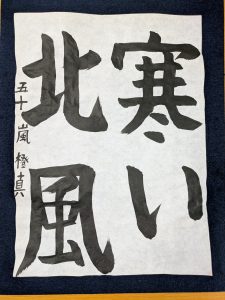 寒い
北風
五十嵐橙真